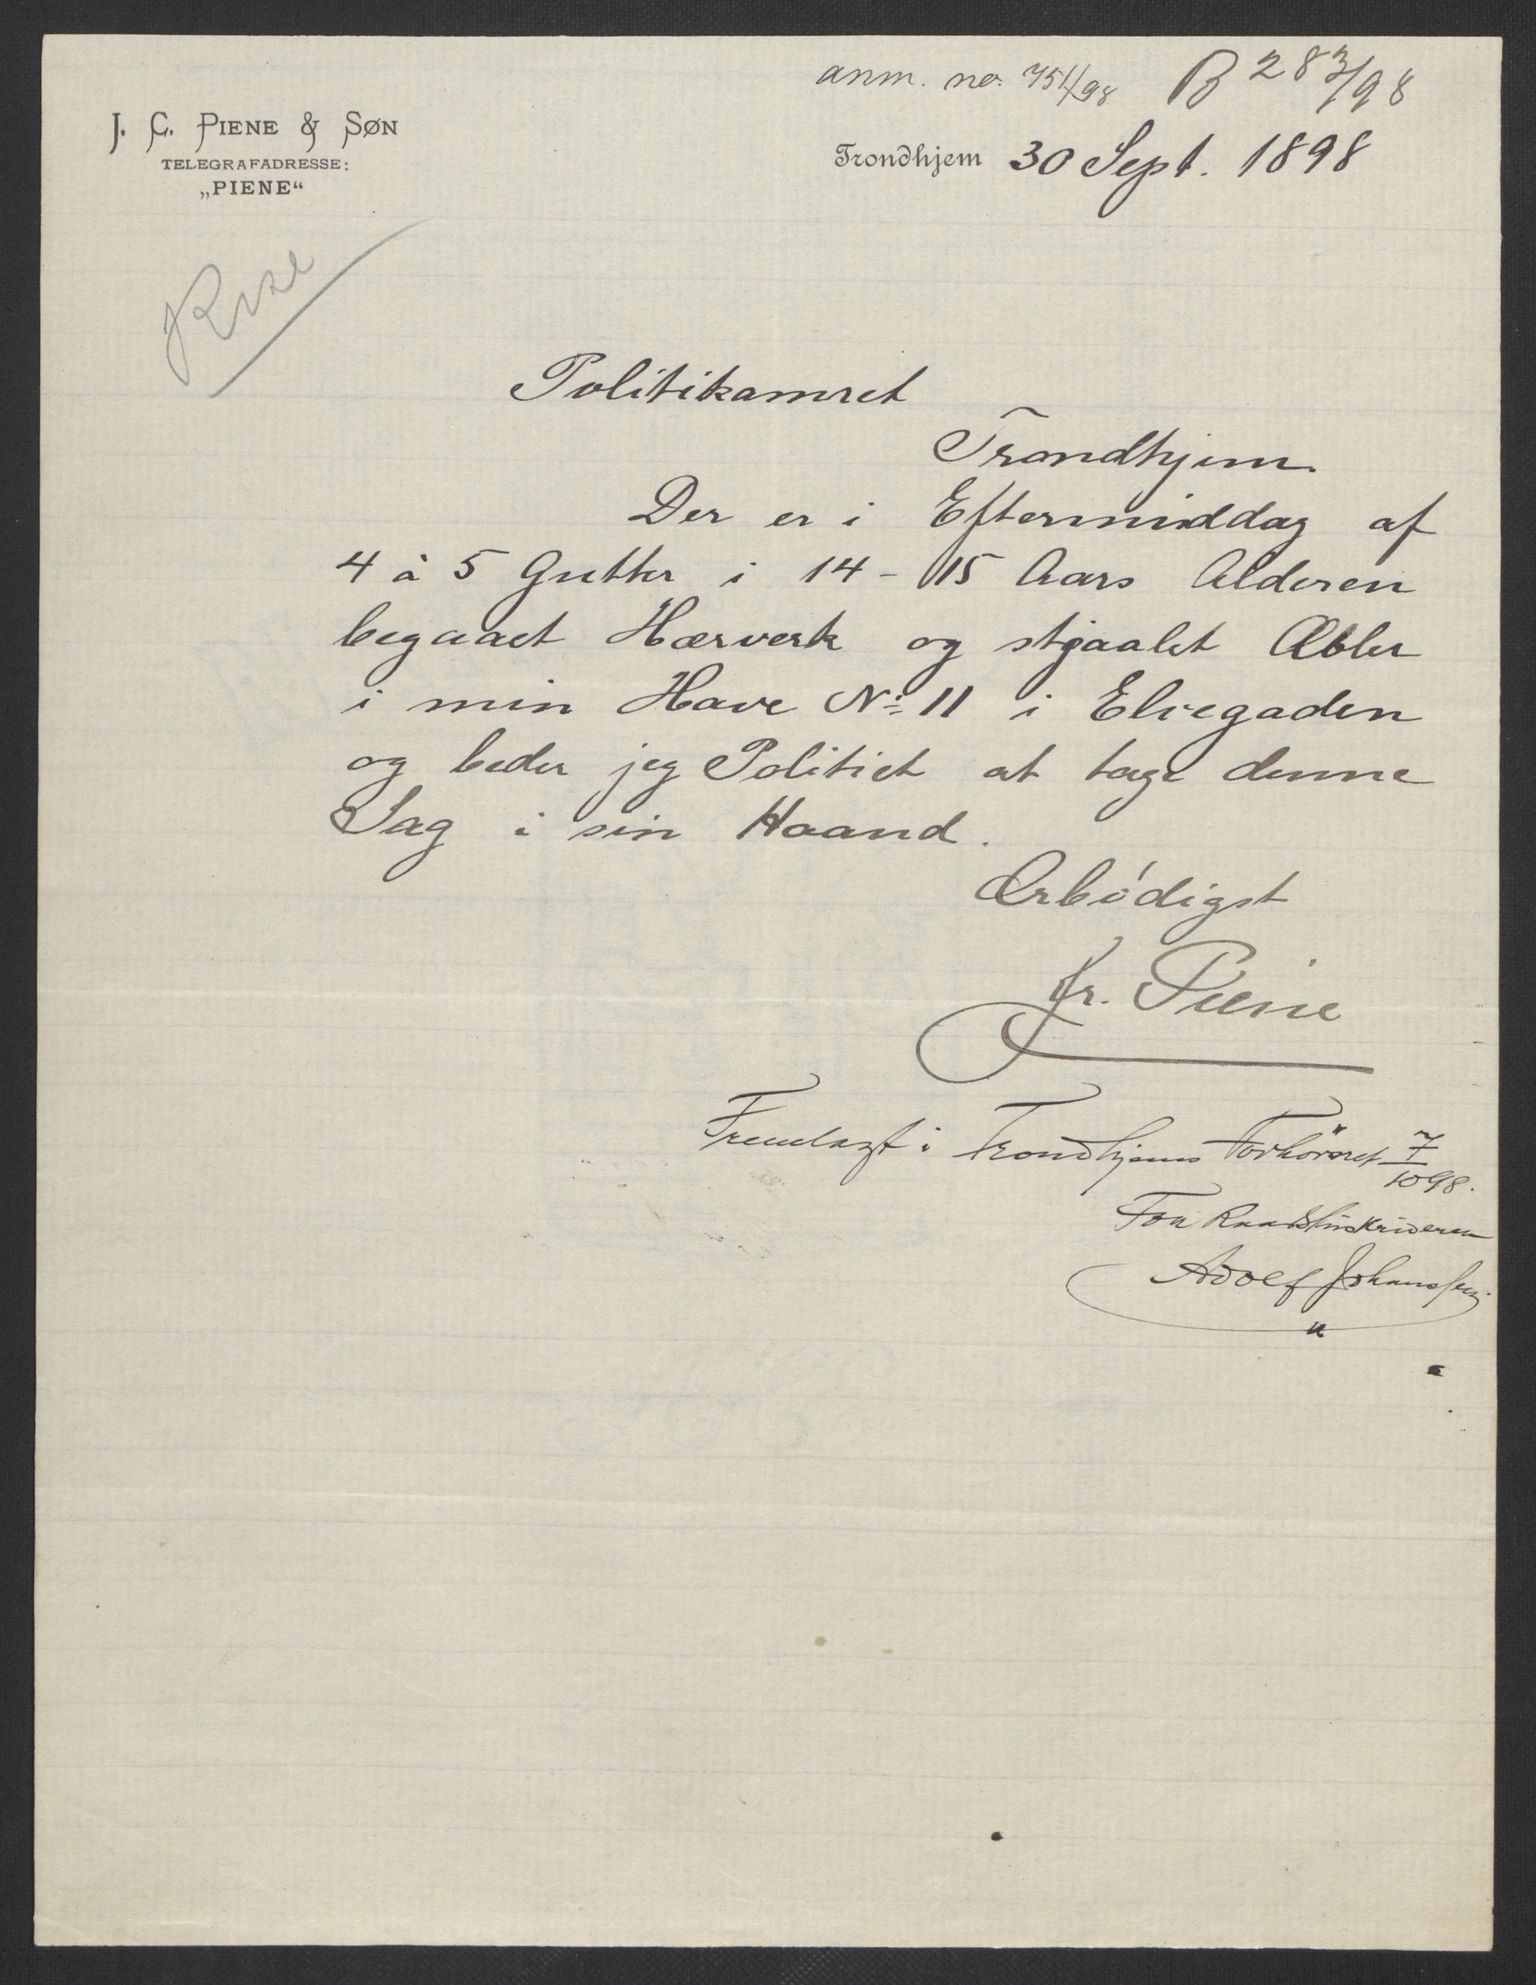 anm. no. 751/98 B 283/98
J. C. PIENE & SØN
TELEGRAFADRESSE:
„PIENE“
Trondhjem 30 Sept. 1898
Politikamret
Trondhjem.
Der er i Eftermiddag af
4 à 5 Gutter i 14 - 15 Aars Alderen
begaaet Hærverk og stjaalet Æbler
i min Have No 11 i Elvegaden
og beder jeg Politiet at tage denne
Sag i sin Haand.
Ærbódigst
Fr. Piene
Fremlagt i Trondhjems Forhörsret 7/10 98.
For Raadstuskriveren
Adolf Johanssen